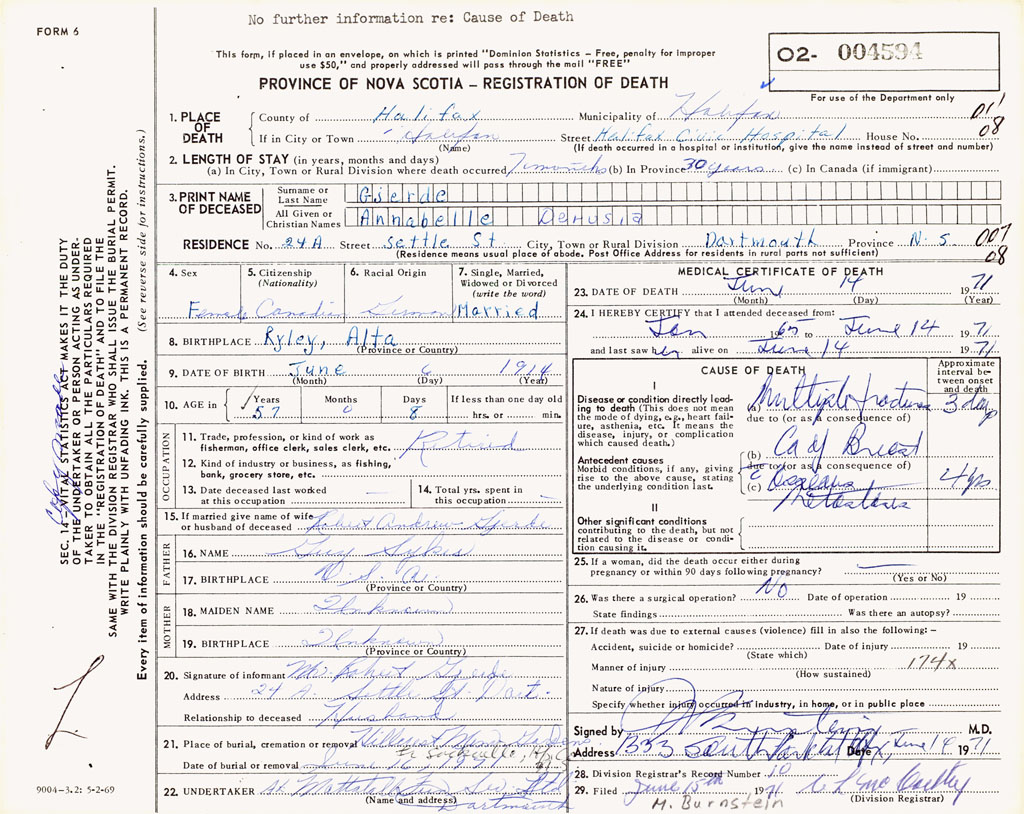 No further information re: Cause of Death
FORM 6
This form, if placed in an envelope, on which is printed "Dominion Statistics – Free, penalty for improper
use $50," and properly addressed will pass through the mail "FREE"
02- 004594
For use of the Department only
PROVINCE OF NOVA SCOTIA – REGISTRATION OF DEATH
1. PLACE OF DEATH
County of Halifax Municipality of Halifax 01
If in City or Town Halifax Street Halifax Civic Hospital House No. 08
(Name) (If death occurred in a hospital or institution, give the name instead of street and number)
2. LENGTH OF STAY (in years, months and days)
(a) In City, Town or Rural Division where death occurred 7 months (b) In Province 30 years (c) In Canada (if immigrant)
3. PRINT NAME OF DECEASED
Surname or Last Name Gjerde
All Given or Christian Names Annabelle Derusia
RESIDENCE No. 24A Street Settle St City, Town or Rural Division Dartmouth Province N.S. 007
(Residence means usual place of abode. Post Office Address for residents in rural parts not sufficient) 08
4. Sex Female
5. Citizenship (Nationality) Canadian
6. Racial Origin German
7. Single, Married, Widowed or Divorced (write the word) Married
8. BIRTHPLACE Ryley, Alta
(Province or Country)
9. DATE OF BIRTH June 6 1914
(Month) (Day) (Year)
10. AGE in Years 57 Months 0 Days 8 If less than one day old hrs. or min.
OCCUPATION
11. Trade, profession, or kind of work as fisherman, office clerk, sales clerk, etc. Retired
12. Kind of industry or business, as fishing, bank, grocery store, etc.
13. Date deceased last worked at this occupation
14. Total yrs. spent in this occupation
15. If married give name of wife or husband of deceased Robert Andrew Gjerde
FATHER
16. NAME Guy Sykes
17. BIRTHPLACE U.S.A.
(Province or Country)
MOTHER
18. MAIDEN NAME Unknown
19. BIRTHPLACE Unknown
(Province or Country)
20. Signature of informant Mr. Robert Gjerde
Address 24 A. Settle St. Dart.
Relationship to deceased Husband
21. Place of burial, cremation or removal Gardens
Date of burial or removal June
22. UNDERTAKER
(Name and address) Dartmouth
MEDICAL CERTIFICATE OF DEATH
23. DATE OF DEATH June 14 1971
(Month) (Day) (Year)
24. I HEREBY CERTIFY that I attended deceased from:
Jan 1965 to June 14 1971
and last saw her alive on June 14 1971
CAUSE OF DEATH
Approximate interval between onset and death
I
Disease or condition directly leading to death (This does not mean the mode of dying, e.g., heart failure, asthenia, etc. It means the disease, injury, or complication which caused death.)
(a) Multiple fractures 3 days
due to (or as a consequence of)
Antecedent causes
Morbid conditions, if any, giving rise to the above cause, stating the underlying condition last.
(b) Ca of Breast
due to (or as a consequence of)
(c) Osseous Metastasis 4 yrs
II
Other significant conditions
contributing to the death, but not related to the disease or condition causing it.
25. If a woman, did the death occur either during pregnancy or within 90 days following pregnancy?
(Yes or No)
26. Was there a surgical operation? No Date of operation 19
State findings Was there an autopsy?
27. If death was due to external causes (violence) fill in also the following: –
Accident, suicide or homicide? Date of injury 19
(State which)
Manner of injury 174x
(How sustained)
Nature of injury
Specify whether injury occurred in industry, in home, or in public place
Signed by M.D.
Address 1333 South Park St Date June 14 1971
28. Division Registrar's Record Number 10
29. Filed June 15th 1971
M. Burnstein (Division Registrar)
SEC. 14 – VITAL STATISTICS ACT MAKES IT THE DUTY
OF THE UNDERTAKER OR PERSON ACTING AS UNDER-
TAKER TO OBTAIN ALL THE PARTICULARS REQUIRED
IN THE "REGISTRATION OF DEATH" AND TO FILE THE
SAME WITH THE DIVISION REGISTRAR WHO SHALL ISSUE THE BURIAL PERMIT.
WRITE PLAINLY WITH UNFADING INK. THIS IS A PERMANENT RECORD.
Every item of information should be carefully supplied. (See reverse side for instructions.)
9004-3.2: 5-2-69